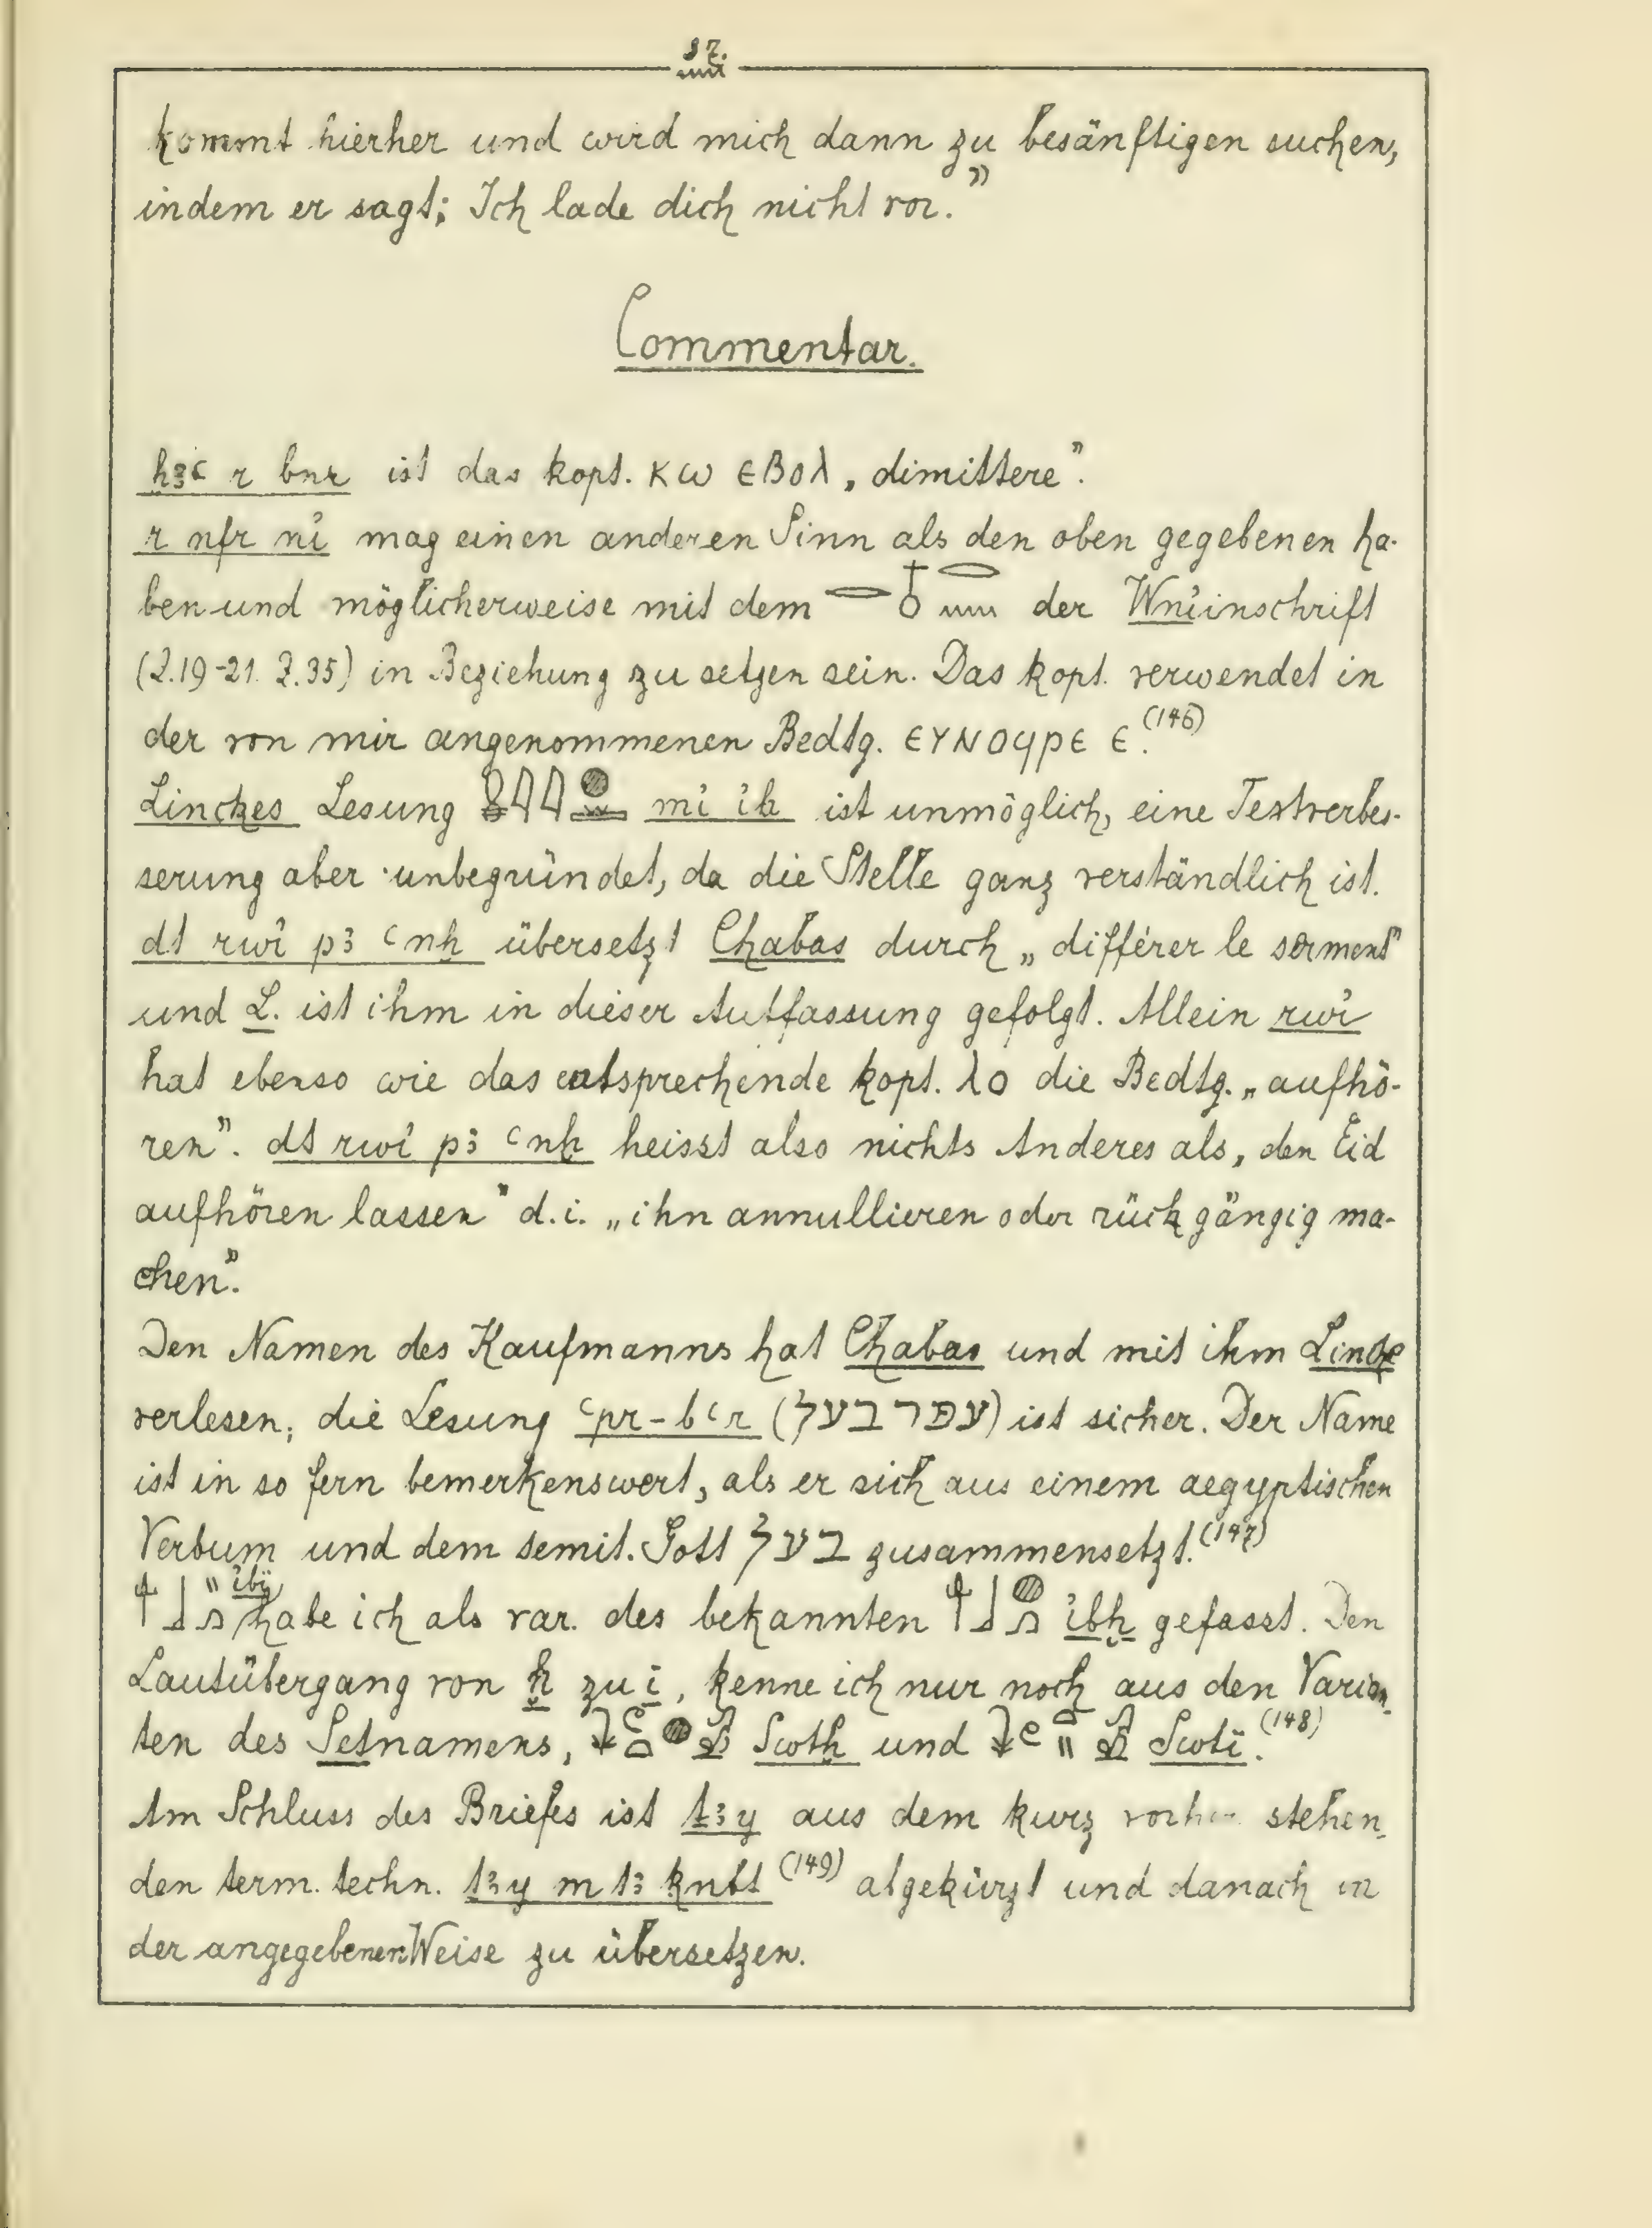 37.
kommt hierher und wird mich dann zu besänftigen suchen,
indem er sagt: Ich lade dich nicht vor.”
Commentar.
ḫꜣꜥ r bnr ist das kopt. ⲕⲱ ⲉⲃⲟⲗ „dimittere”.
r nfr nỉ mag einen anderen Sinn als den oben gegebenen ha-
ben und möglicherweise mit dem der Wnỉinschrift
(Z.19-21. Z.35) in Beziehung zu setzen sein. Das kopt. verwendet in
der von mir angenommenen Bedtg. ⲉⲩⲛⲟϥⲣⲉ ⲉ.(146)
Linckes Lesung mỉ ỉḫ ist unmöglich, eine Textverbes-
serung aber unbegründet, da die Stelle ganz verständlich ist.
dt rwỉ pꜣ ꜥnḫ übersetzt Chabas durch „différer le serment”
und L. ist ihm in dieser Auffassung gefolgt. Allein rwỉ
hat ebenso wie das entsprechende kopt. ⲗⲟ die Bedtg. „aufhö-
ren”. dt rwỉ pꜣ ꜥnḫ heisst also nichts Anderes als „den Eid
aufhören lassen” d.i. „ihn annullieren oder rückgängig ma-
chen”.
Den Namen des Kaufmanns hat Chabas und mit ihm Lincke
verlesen; die Lesung ꜥpr-bꜥr (עפר בעל) ist sicher. Der Name
ist in so fern bemerkenswert, als er sich aus einem aegyptischen
Verbum und dem semit. Gott בעל zusammensetzt.(147)
ỉbï habe ich als var. des bekannten ỉbḫ gefasst. Den
Lautübergang von ḫ zu ï, kenne ich nur noch aus den Varian-
ten des Setnamens, Swtḫ und Swtï.(148)
Am Schluss des Briefes ist ṯꜣy aus dem kurz vorher stehen-
den term. techn. ṯꜣy m tꜣ ḳnbt (149) abgekürzt und danach in
der angegebenen Weise zu übersetzen.